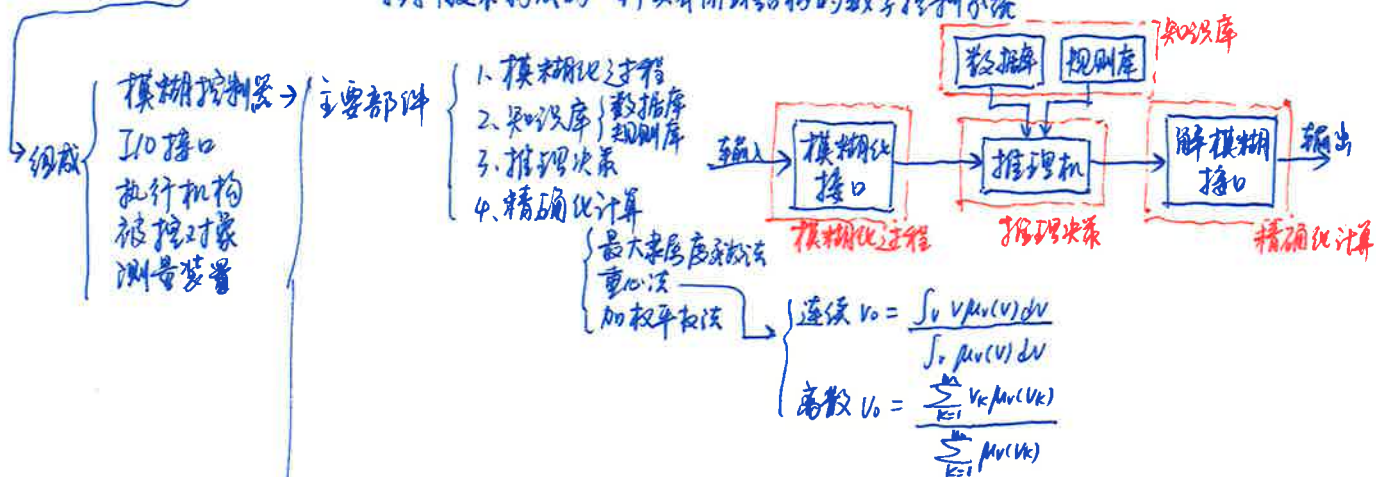 技术构成的一种具有闭环结构的数字控制系统
组成
模糊控制器
I/O接口
执行机构
被控对象
测量装置
主要部件
1、模糊化过程
2、知识库
数据库
规则库
3、推理决策
4、精确化计算
最大隶属度函数法
重心法
加权平均法
连续 v₀ = ∫ᵥ vμᵥ(v)dv / ∫ᵥ μᵥ(v)dv
离散 v₀ = ∑ₖ₌₁ᵐ vₖμᵥ(vₖ) / ∑ₖ₌₁ᵐ μᵥ(vₖ)
数据库
规则库
知识库
输入
模糊化
接口
推理机
解模糊
接口
输出
模糊化过程
推理决策
精确化计算